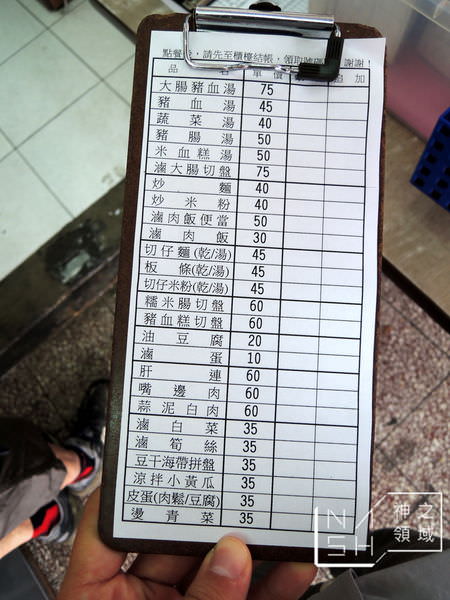 點餐後，請先至櫃檯結帳，領取號碼 謝謝！
品 名 單價 追加
大腸豬血湯 75
豬血湯 45
蔬菜湯 40
豬腸湯 50
米血糕湯 50
滷大腸切盤 75
炒麵 40
炒米粉 40
滷肉飯便當 50
滷肉飯 30
切仔麵(乾/湯) 45
板條(乾/湯) 45
切仔米粉(乾/湯) 45
糯米腸切盤 60
豬血糕切盤 60
油豆腐 20
滷蛋 10
肝連 60
嘴邊肉 60
蒜泥白肉 60
滷白菜 35
滷筍絲 35
豆干海帶拼盤 35
涼拌小黃瓜 35
皮蛋(肉鬆/豆腐) 35
燙青菜 35
NASH 神之領域